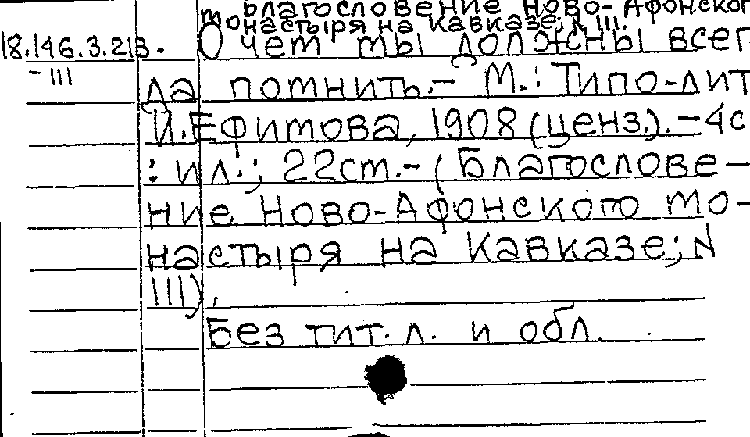 Благословение Ново-Афонског
монастыря на Кавказе; N 111.
18.146.3.213. О чем мы должны всег
-111
да помнить.- М.: Типо-лит
И.Ефимова, 1908 (ценз.).-4с
: ил.; 22см.- (Благослове-
ние Ново-Афонского мо-
настыря на Кавказе; N
111).
Без тит. л. и обл.